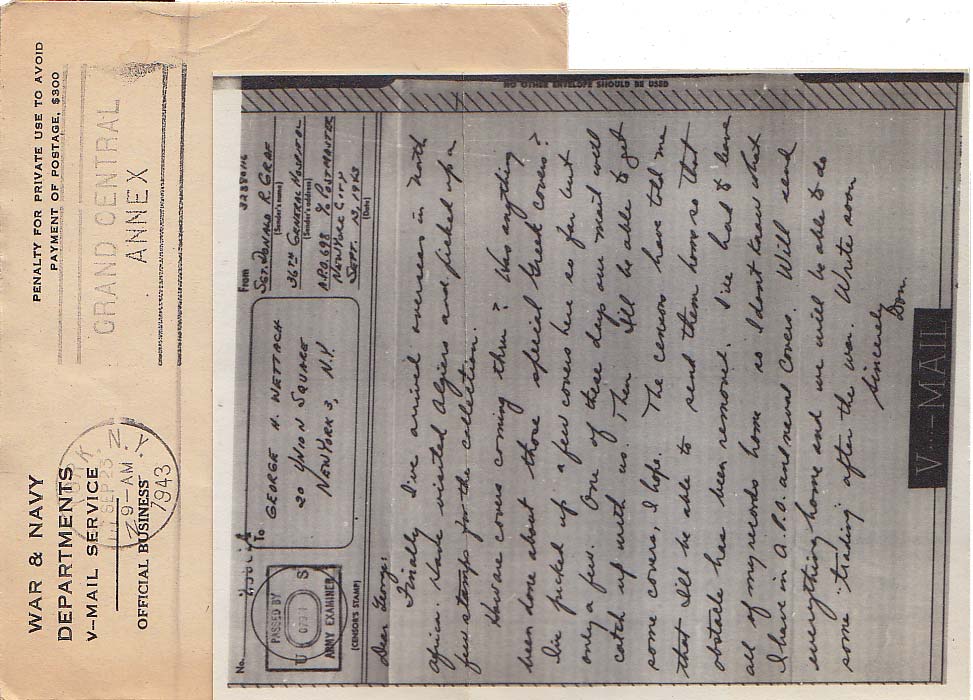 WAR & NAVY
DEPARTMENTS
V-MAIL SERVICE
OFFICIAL BUSINESS
PENALTY FOR PRIVATE USE TO AVOID
PAYMENT OF POSTAGE, $300
GRAND CENTRAL
ANNEX
N.Y.
SEP 23
9-AM
1943
NO OTHER ENVELOPE SHOULD BE USED
No.
PASSED BY
U S
ARMY EXAMINER
(CENSOR'S STAMP)
To
GEORGE H. WETTACH
20 UNION SQUARE
NEW YORK 3, N.Y.
From
SGT. DONALD R. GRAF 32380116
(Sender's name)
36TH GENERAL HOSPITAL
(Sender's address)
A.P.O. 698 % POSTMASTER
NEW YORK CITY
SEPT. 13, 1943
(Date)
Dear George:
Finally I've arrived overseas in north
africa. Have visited Algiers and picked up a
few stamps for the collection.
How are covers coming thru? Was anything
been done about those special Greek covers?
I've picked up a few covers here so far but
only a few. One of these days our mail will
catch up with us. Then I'll be able to get
some covers, I hope. The censors have told me
that I'll be able to send them home so that
obstacle has been removed. I've had to leave
all of my records home so I dont know what
I have in A.P.O. and naval covers. Will send
everything home and we will be able to do
some "trading" after the war. Write soon
Sincerely
Don
V···-MAIL